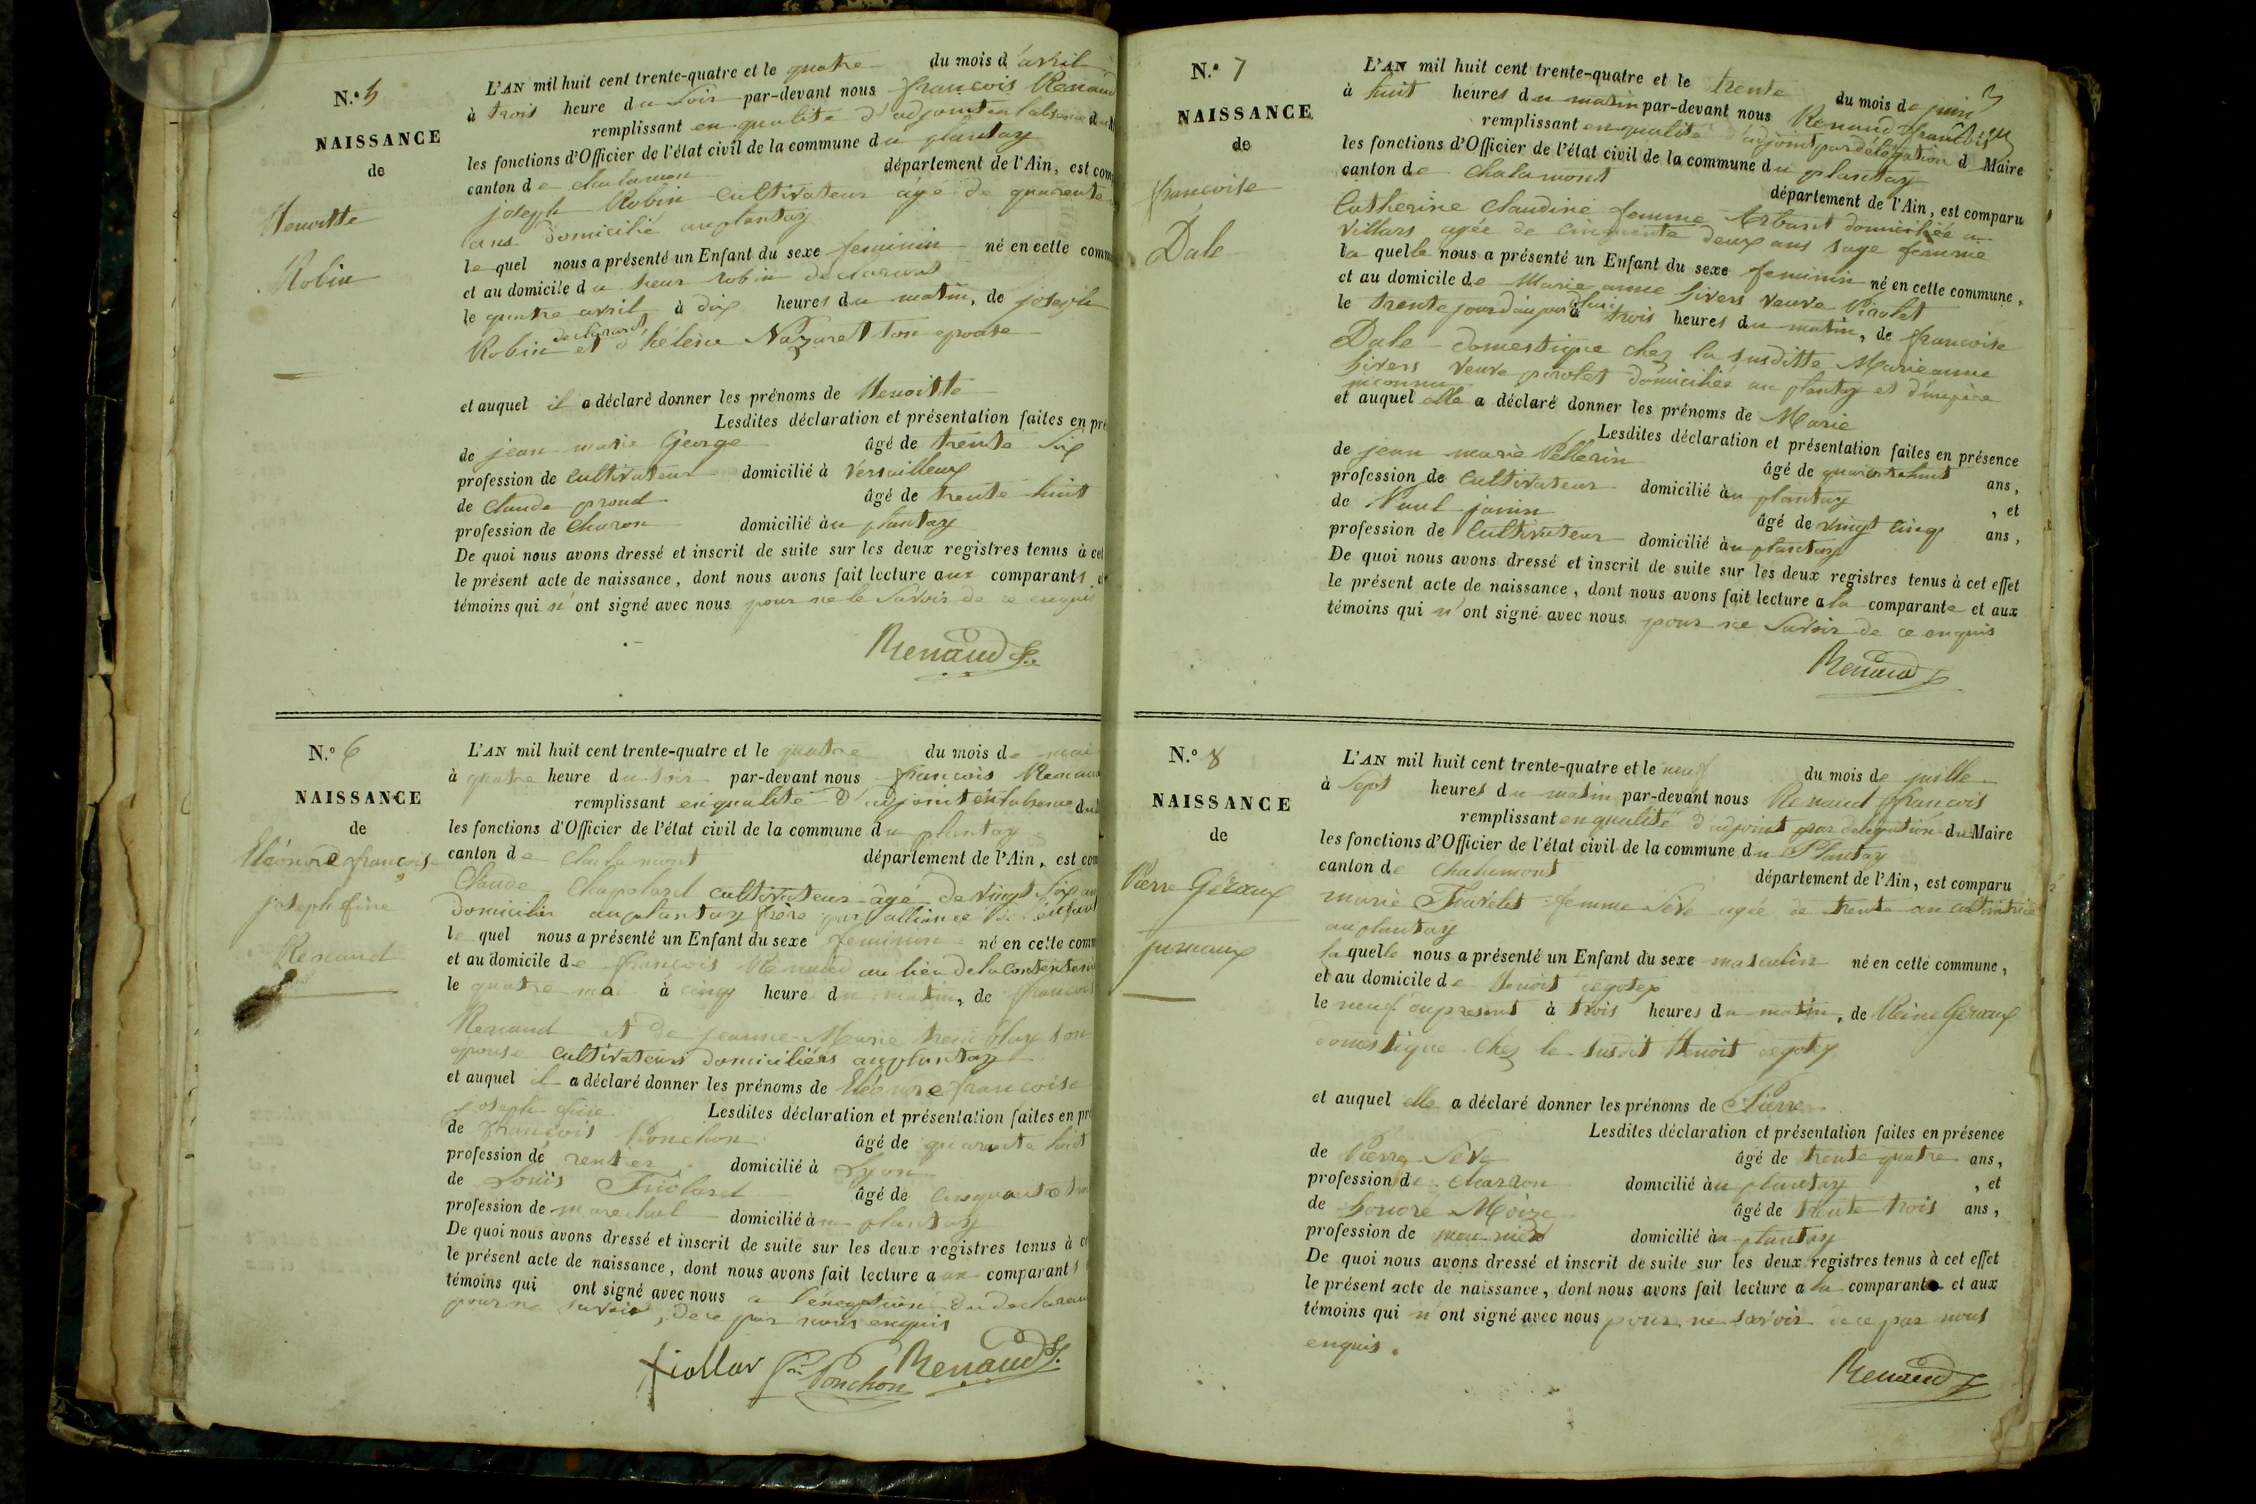 N.º 5
NAISSANCE
de
Benoitte
Robin
L'AN mil huit cent trente-quatre et le quatre du mois d'avril
à trois heure du soir par-devant nous françois Renaud
remplissant en qualité d'adjoint en l'absence du
les fonctions d'Officier de l'état civil de la commune du plantay
canton de chalamon département de l'Ain, est com
joseph Robin cultivateur agé de quarente
ans domicilié au plantay
lequel nous a présenté un Enfant du sexe feminin né en cette comm
et au domicile du sieur robin declarant
le quatre avril à dix heures du matin, de joseph
Robin declarant, et d'hélène Nazaret son epouse
et auquel il a déclaré donner les prénoms de Benoitte
Lesdites déclaration et présentation faites en pré
de jean marie George âgé de trente six
profession de cultivateur domicilié à Versailleux
de claude proud âgé de trente huit
profession de charon domicilié au plantay
De quoi nous avons dressé et inscrit de suite sur les deux registres tenus à cet
le présent acte de naissance, dont nous avons fait lecture aux comparants et
témoins qui n'ont signé avec nous pour ne le savoir de ce enquis
Renaud f.
N.º 6
NAISSANCE
de
Eléonore françoise
joseph fine
Renaud
L'AN mil huit cent trente-quatre et le quatre du mois de mai
à quatre heure du soir par-devant nous françois Renaud
remplissant en qualité d'adjoint en l'absence du
les fonctions d'Officier de l'état civil de la commune du plantay
canton de chalamont département de l'Ain, est com
Claude Chapolard cultivateur agé de vingt six ans
domicilier au plantay frère par alliance de l'enfant
le quel nous a présenté un Enfant du sexe feminin né en cette comm
et au domicile de françois Renaud au lieu de la
le quatre mai à cinq heure du matin, de françois
Renaud et de jeanne-Marie son
epouse cultivateurs domiciliées au plantay
et auquel il a déclaré donner les prénoms de Eléonore françoise
joseph fine Lesdites déclaration et présentation faites en pré
de françois Ponchon âgé de quarante huit
profession de rentier domicilié à Lyon
de Louis Fiolard âgé de cinquante
profession de marechal domicilié au plantay
De quoi nous avons dressé et inscrit de suite sur les deux registres tenus à c
le présent acte de naissance, dont nous avons fait lecture aux comparants
témoins qui ont signé avec nous a du declarant
pour ne savoir, de ce par nous enquis
fiollar Ponchon Renaud f.
N.º 7
NAISSANCE
de
françoise
Dale
3
L'AN mil huit cent trente-quatre et le trente du mois de juin
à huit heures du matin par-devant nous Renaud françois
remplissant en qualité d'adjoint par délégation d Maire
les fonctions d'Officier de l'état civil de la commune du plantay
canton de chalamont département de l'Ain, est comparu
Catherine claudine femme Arbant domiciliée a
Villars agée de cinquente deux ans sage femme
la quelle nous a présenté un Enfant du sexe feminin né en cette commune,
et au domicile de Marie anne givers veuve Pirolet
le trente jour d'aujourd'hui à trois heures du matin, de françoise
Dale domestique chez la susditte Marieanne
givers veuve pirolet domiciliée au plantay et d'un père
inconnu
et auquel elle a déclaré donner les prénoms de Marie
Lesdites déclaration et présentation faites en présence
de jean marie Pellerin âgé de quarentehuit ans,
profession de Cultivateur domicilié au plantay, et
de Paul janin âgé de vingt cinq ans,
profession de Cultivateur domicilié au plantay
De quoi nous avons dressé et inscrit de suite sur les deux registres tenus à cet effet
le présent acte de naissance, dont nous avons fait lecture à la comparante et aux
témoins qui n'ont signé avec nous pour ne savoir de ce enquis
Renaud f
N.º 8
NAISSANCE
de
Pierre Géroux
jumeaux
L'AN mil huit cent trente-quatre et le neuf du mois de juille
à sept heures du matin par-devant nous Renaud françois
remplissant en qualité d'adjoint par delegation du Maire
les fonctions d'Officier de l'état civil de la commune du Plantay
canton de chalamont département de l'Ain, est comparu
marie femme Sève agée de trente an
au plantay
la quelle nous a présenté un Enfant du sexe masculin né en cette commune,
et au domicile de Benoit
le neuf du present à trois heures du matin, de Reine Geroux
domestique chez le susdit Benoit
et auquel elle a déclaré donner les prénoms de Pierre
Lesdites déclaration et présentation faites en présence
de Pierre Sève âgé de trente quatre ans,
profession de charron domicilié au plantay, et
de honoré Moize âgé de trente trois ans,
profession de meunier domicilié au plantay
De quoi nous avons dressé et inscrit de suite sur les deux registres tenus à cet effet
le présent acte de naissance, dont nous avons fait lecture a la comparante et aux
témoins qui n'ont signé avec nous pour ne savoir de ce par nous
enquis.
Renaud f